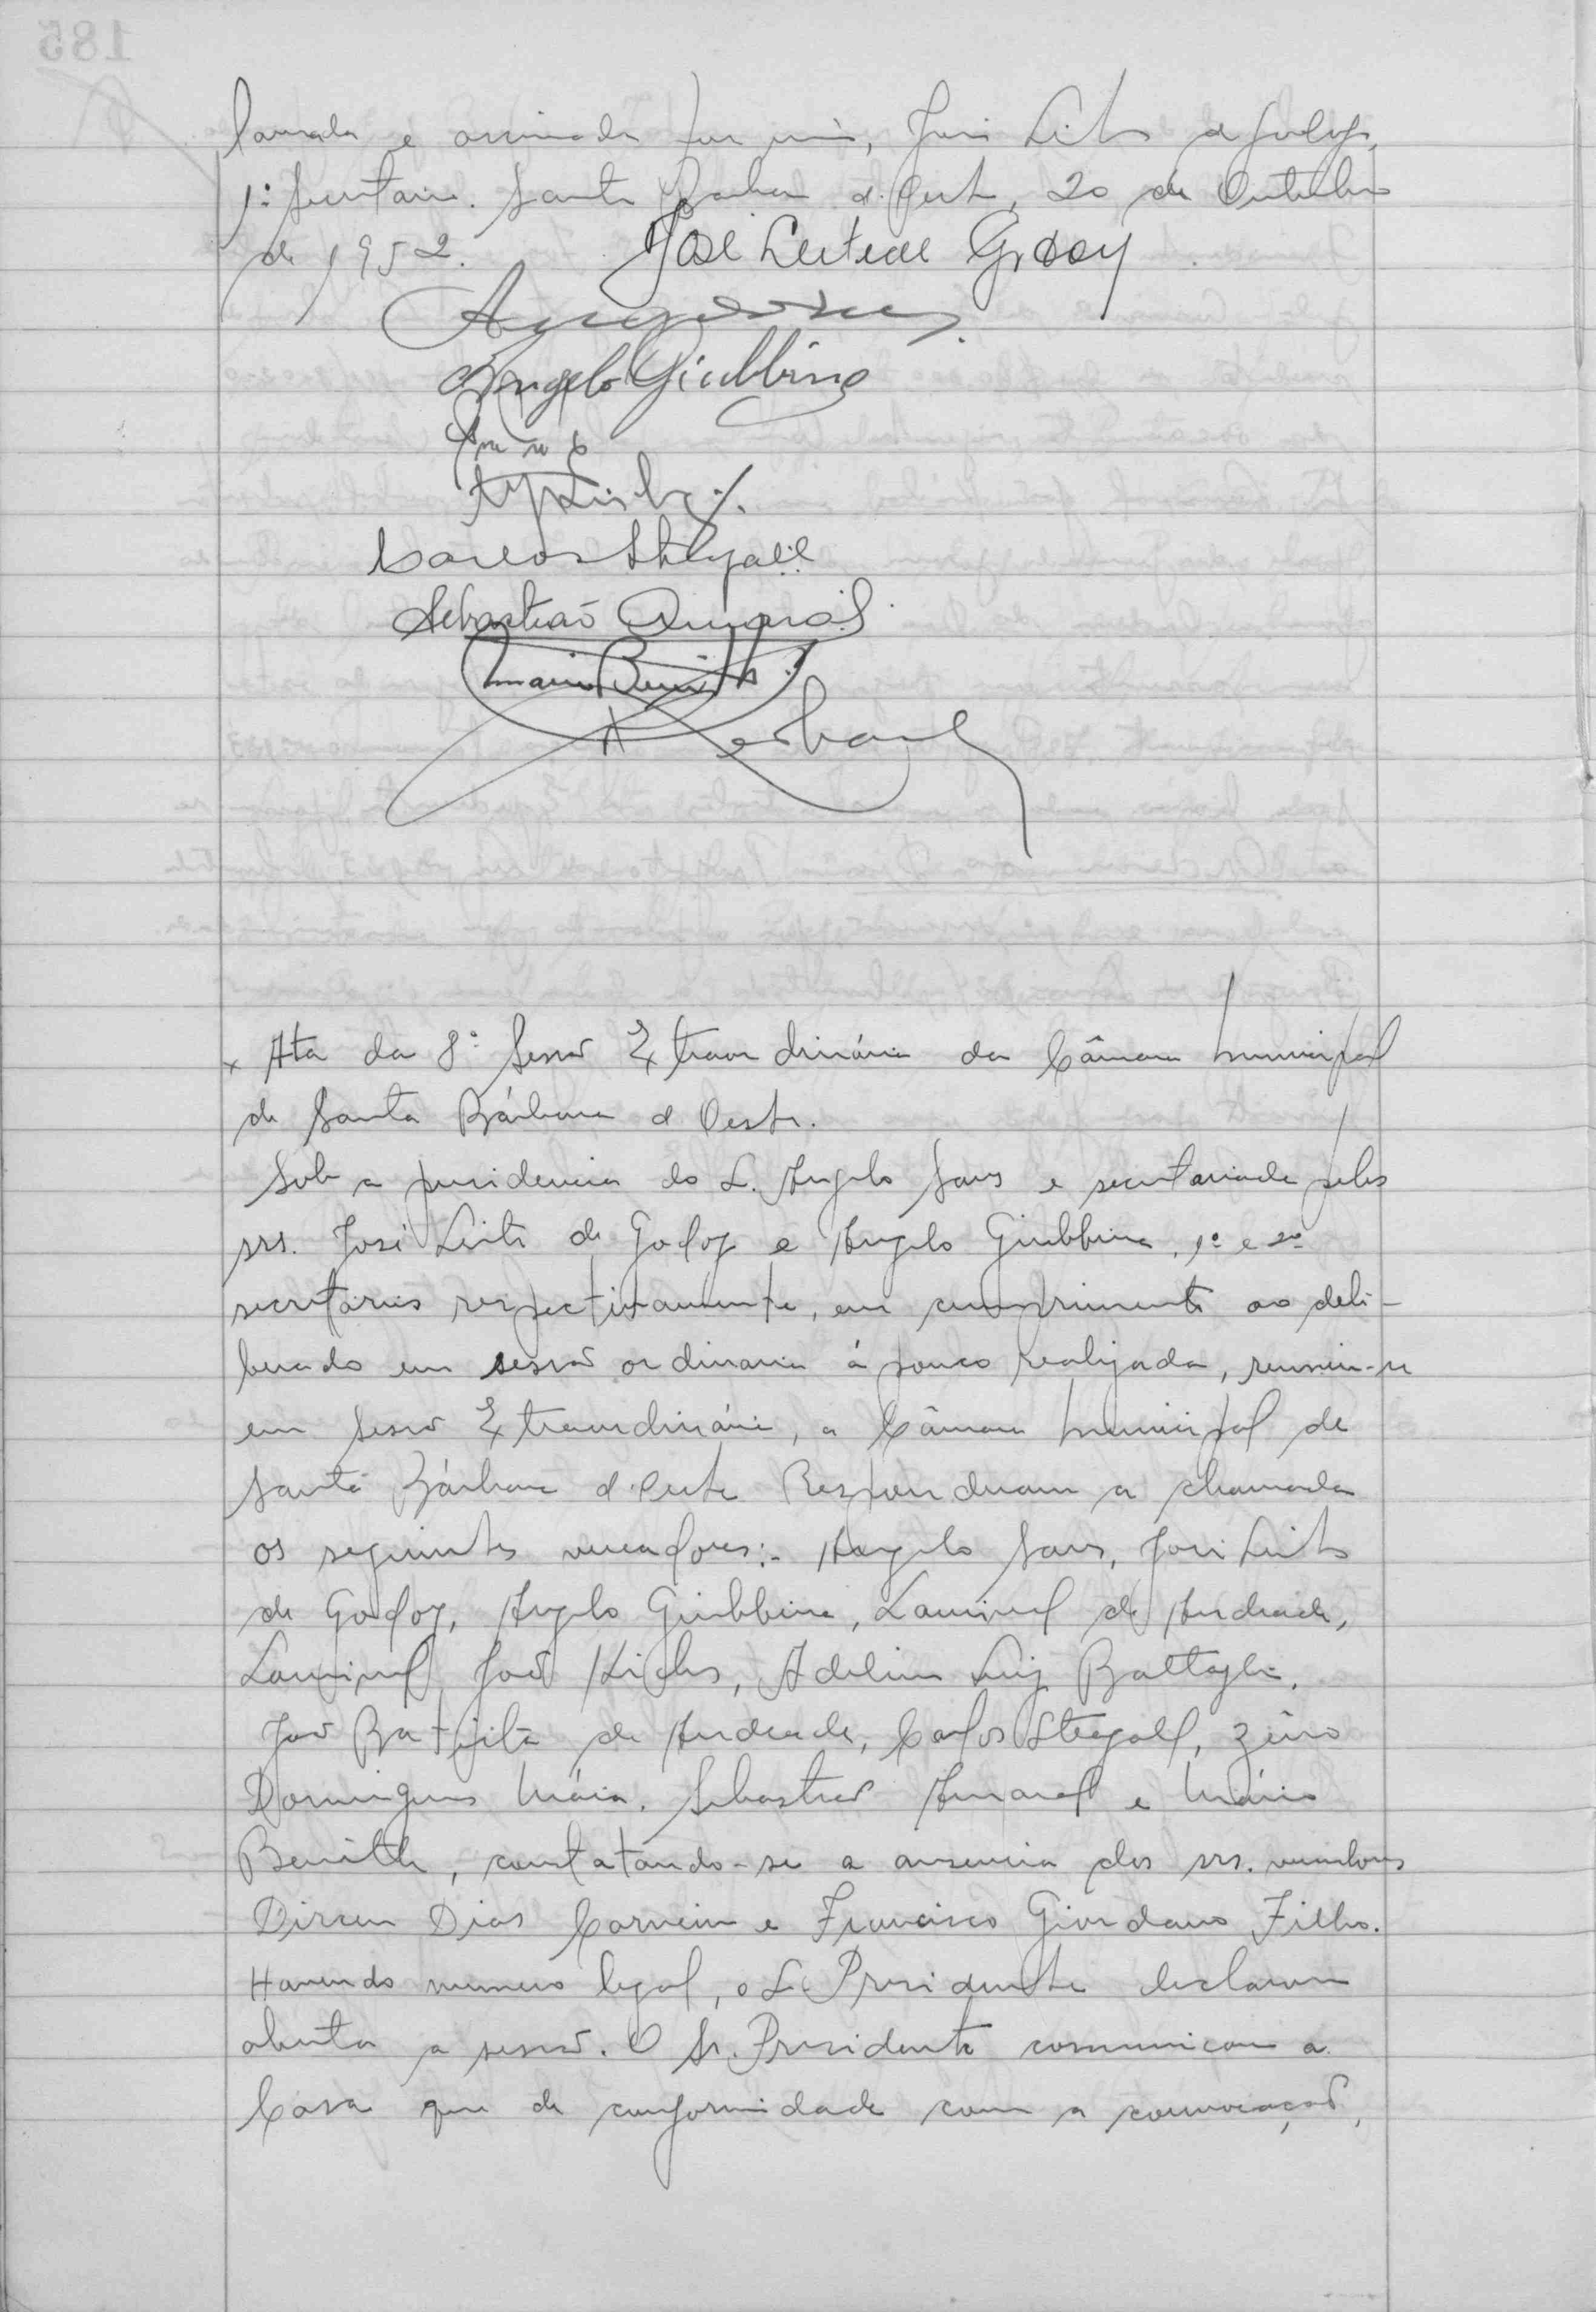 lavrada e assinada por mim, José Leite de Godoy,
1º Secretario. Santa Barbara d'Oeste, 20 de Outubro
de 1952. José Leite de Godoy
Angelo Giubbina
Carlos Steagall
Sebastião Amaral
Mario Benith
x Ata da 8ª Sessão Extraordinária da Câmara Municipal
de Santa Bárbara d'Oeste.
Sob a presidencia do S. Angelo Sans e secretariada pelos
srs. José Leite de Godoy e Angelo Giubbina, 1º e 2º
secretários respectivamente, em cumprimento ao deli-
berado em sessão ordinaria á pouco realizada, reuniu-se
em Sessão Extraordinária, a Câmara Municipal de
Santa Bárbara d'Oeste Responderam a chamada
os seguintes vereadores:- Angelo Sans, José Leite
de Godoy, Angelo Giubbina, Laurival de Andrade,
João, Adelino Luiz Battaglia,
João Batista de Andrade, Carlos Steagall, Zino
Domingues Máia, Sebastião Amaral e Mário
Benith, constatando-se a ausencia dos srs. vereadores
Dirceu Dias Carneiro e Francisco Giordano Filho.
Havendo numero legal, o S. Presidente declarou
aberta a sessão. O Sr. Presidente comunicou a
Casa que de conformidade com a convocação,
185